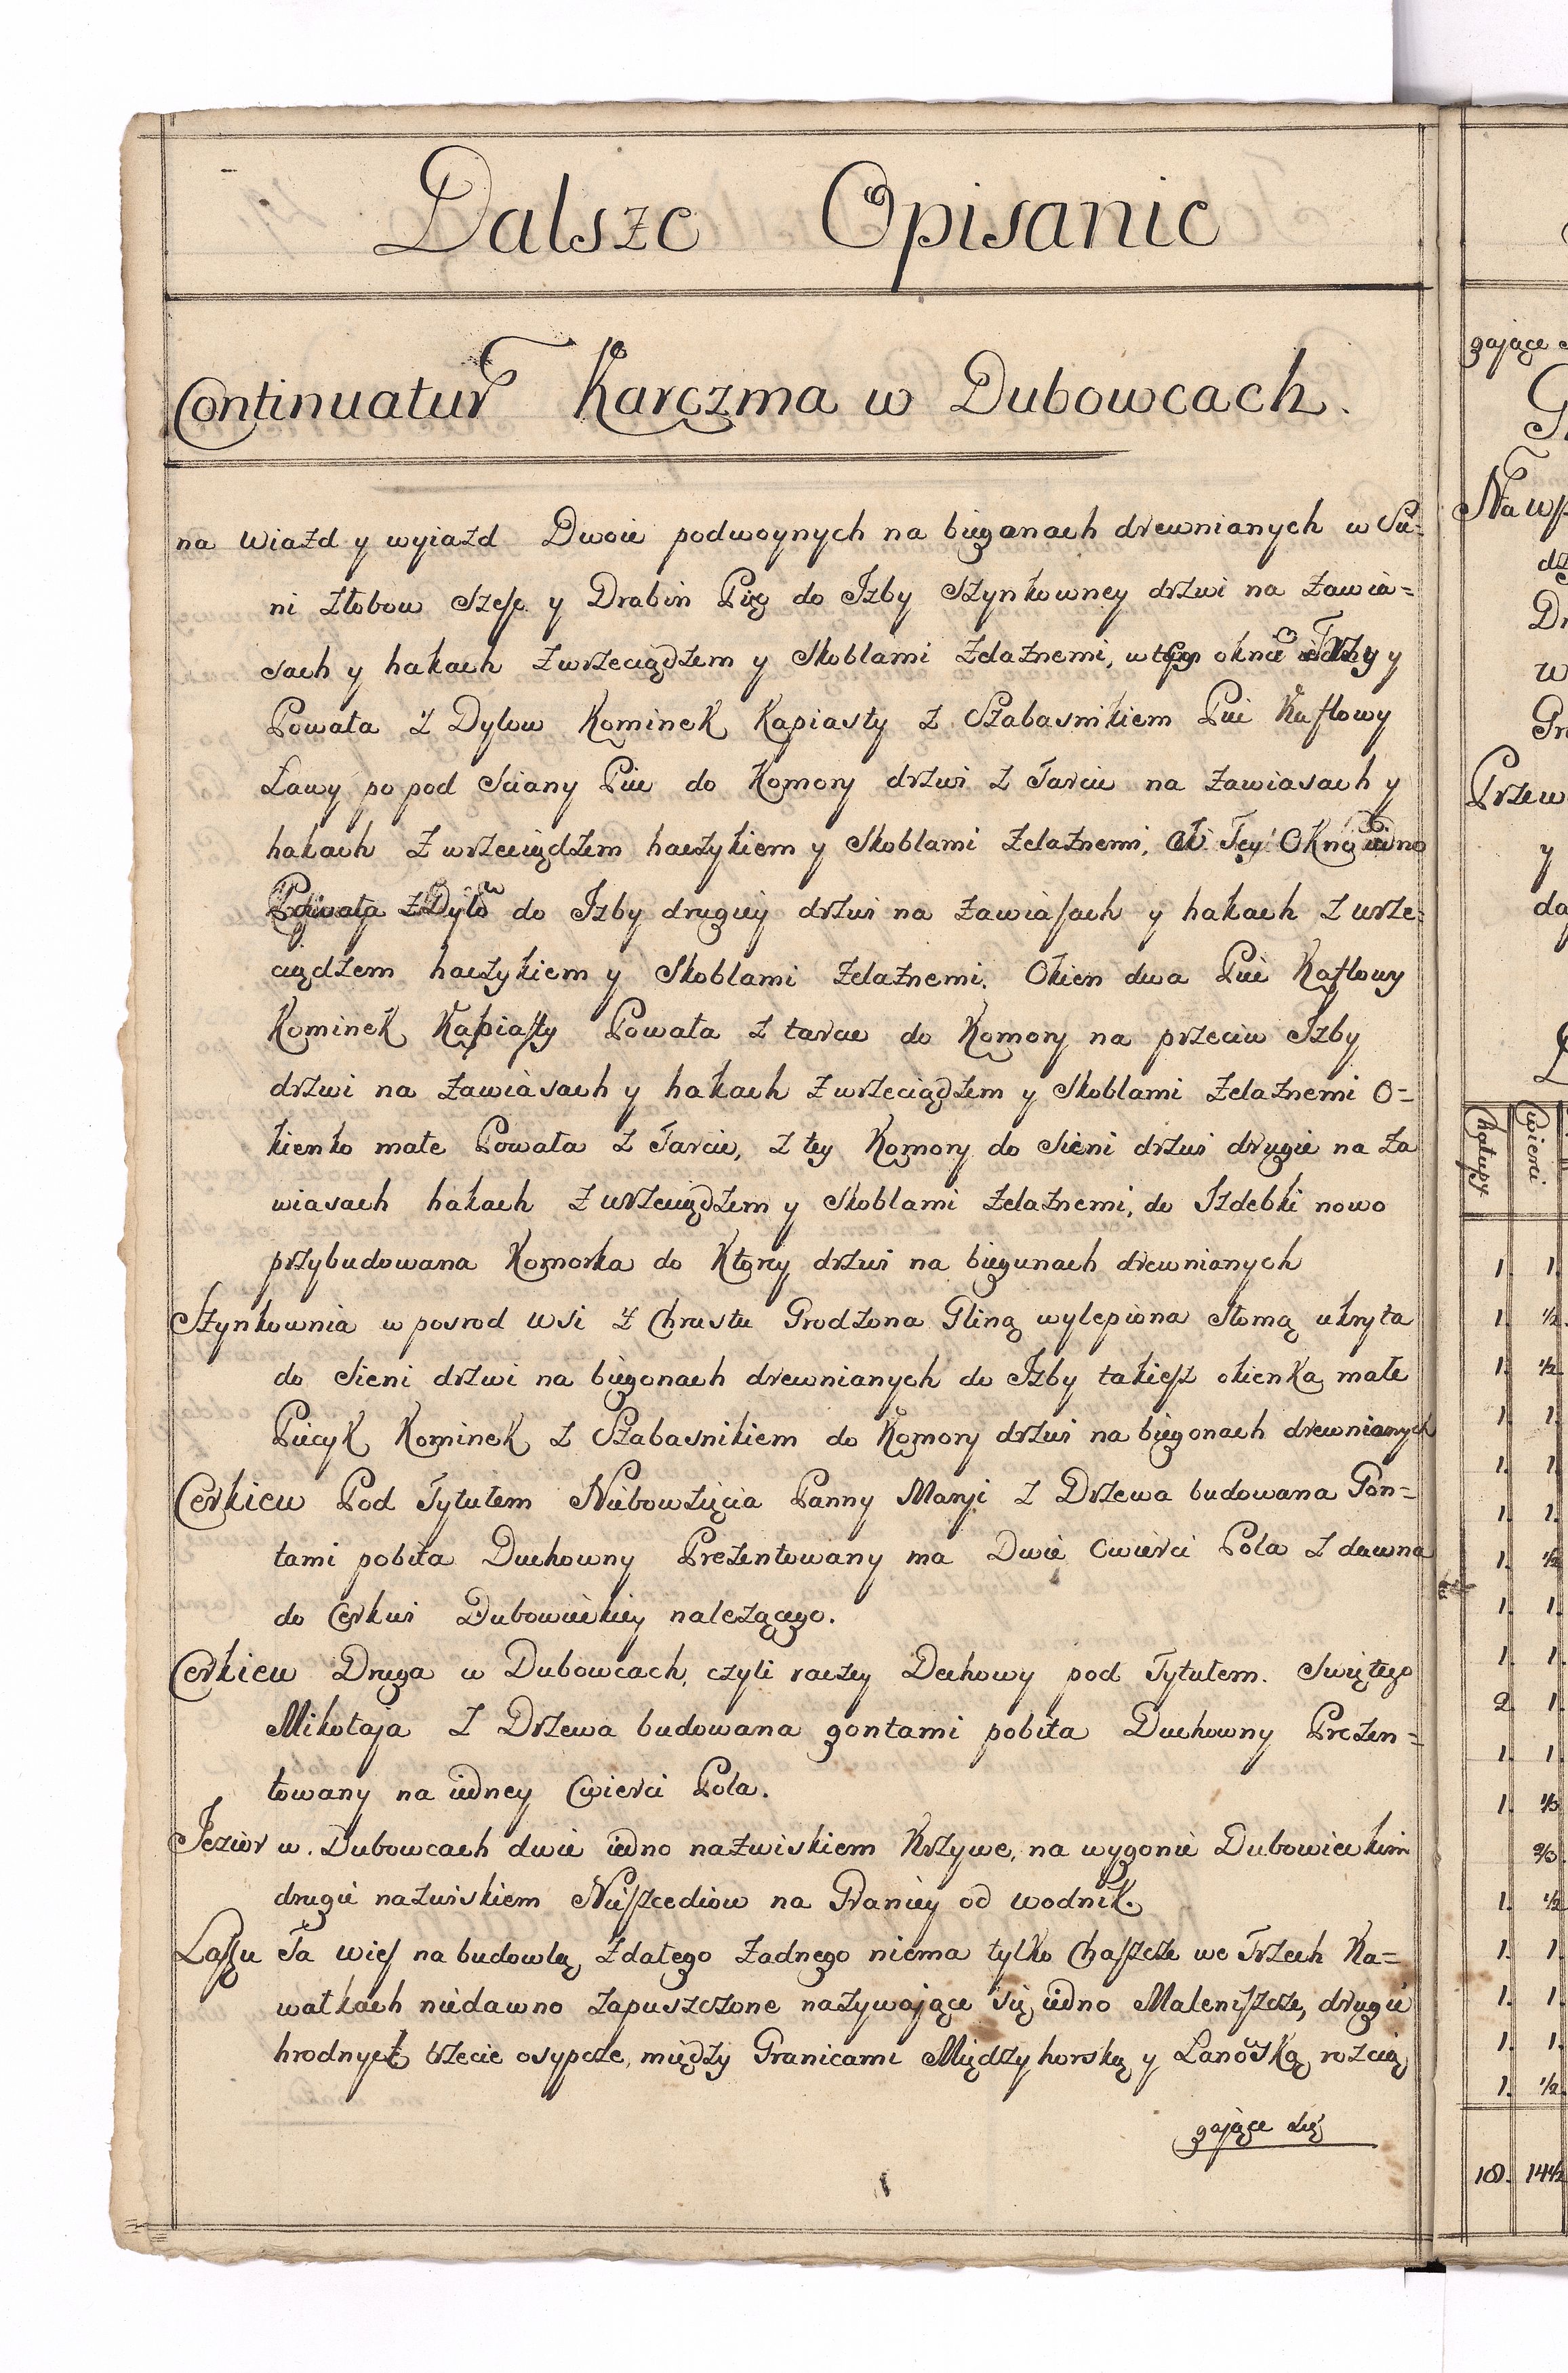 Dalsze Opisanie
Continuatur Karczma w Dubowcach.
na wiazd y wyiazd Dwoie podwoynych na biegonach drewnianych w Sie=
ni Złobow Szesc y Drabin Pięc do Izby Szynkowney drzwi na Zawia=
sach y hakach z wrzeciądzem y Skoblami Zelaznemi, w tey okna Trzy y
Powała z Dylow Kominek Kapiasty z Szabasnikiem Piec Kaflowy
Ławy po pod Sciany Piec do Komory drzwi z Tarcic na Zawiasach y
hakach z wrzeciądzem haczykiem y Skoblami Zelaznemi, Tey Okno iedno
Powała z Dylow do Izby drugiey drzwi na Zawiasach y hakach z wrze=
ciądzem haczykiem y Skoblami Zelaznemi. Okien dwa Piec Kaflowy
Kominek Kapiasty Powała z tarcic do Komory na przeciw Izby
drzwi na Zawiasach y hakach z wrzeciądzem y Skoblami Zelaznemi O=
kienko małe Powała z Tarcic, z tey Komory do Sieni drzwi drugie na Za
wiasach hakach z wrzeciądzem y Skoblami Zelaznemi, do Izdebki nowo
przybudowana Komorka do Ktorey drzwi na biegunach drewnianych
Szynkownia w posrod Wsi z Chrustu Grodzona Gliną wylepiona Słomą ukryta
do Sieni drzwi na biegonach drewnianych do Izby takiesz okienka małe
Piecyk Kominek z Szabasnikiem do Komory drzwi na biegonach drewnianych
Cerkiew Pod Tytułem Niebowzięcia Panny Maryi z Drzewa budowana Gon=
tami pobita Duchowny Prezentowany ma Dwie Cwierci Pola z dawna
do Cerkwi Dubowieckiey należącego.
Cerkiew Druga w Dubowcach, czyli raczey Dechowy pod Tytułem. Swiętego
Mikołaja z Drzewa budowana gontami pobita Duchowny Prezen=
towany na iedney Cwierci Pola.
Jezior w. Dubowcach dwie iedno nazwiskiem Krzywe, na wygonie Dubowieckim
drugie nazwiskiem Nieszcediow na Graniey od wodnik.
Lassu Ta wies na budowlą zdatego Zadnego niema tylko Chaszcze we Trzech Ka=
wałkach niedawno zapuszczone nazywające się iedno Maleniszcze, drugie
trzecie osypcze, między Granicami Międzyhorską y Lanowską rozcią
gające się
gające
Na
Przew
y
Chałupy
Cwierci
1. 1.
1. ½.
1. ½
1. 1.
1. 1.
1. 1.
1. ½
1. 1.
1. 1.
2. 1.
1. 1.
1. ⅓
⅔
1. ½
1. 1.
1. 1.
1. 1.
1. ½
18. 14½